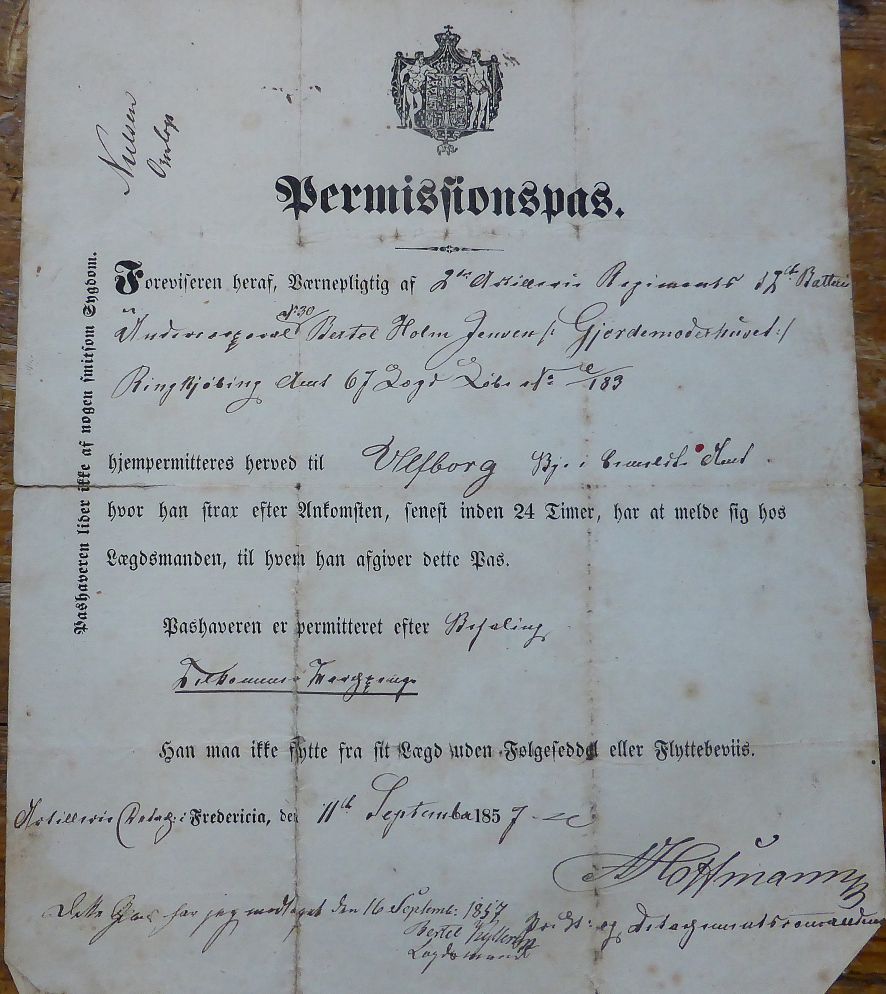 Nielsen
Permissionspas.
Foreviseren heraf, Værnepligtig af 2den Artillerie Regiments 12te Batteri
№ 30
Undercorporal Bertel Holm Jensen /: Gjordemoderhuset :/
Ringkjøbing Amt 67 Lægd Løbe No 183
hjempermitteres herved til Ulfborg By i bemeldte Amt
hvor han strax efter Ankomsten, senest inden 24 Timer, har at melde sig hos
Lægdsmanden, til hvem han afgiver dette Pas.
Pashaveren er permitteret efter Befaling
Tilkommer Marchpenge
Han maa ikke flytte fra sit Lægd uden Følgeseddel eller Flyttebeviis.
Artilleriedetach: i Fredericia, den 11te September 1857
AHoffmann
Dette Pas har jeg modtaget den 16 Septemb: 1857
Bertel
Lægdsmand
og Detachementscommandeur
Pashaveren lider ikke af nogen smitsom Sygdom.